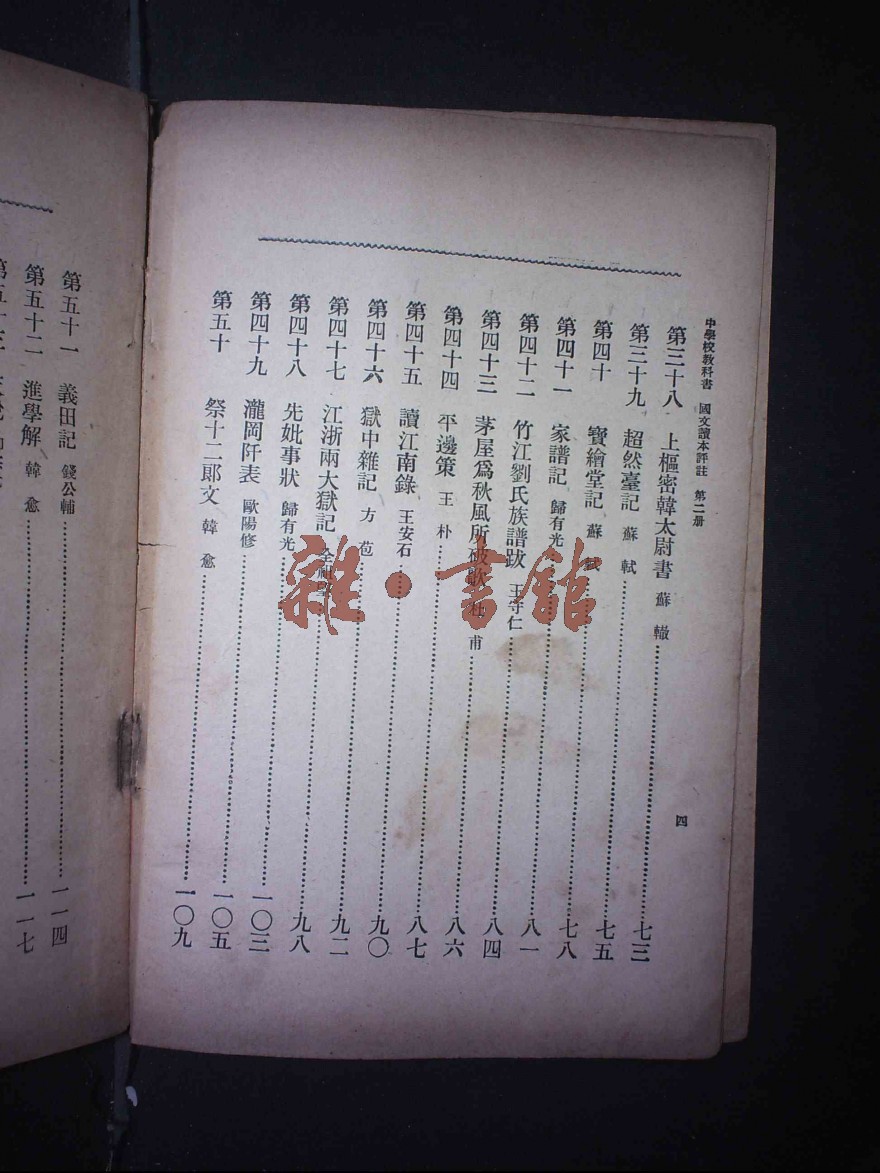 中學校教科書 國文讀本評註 第二册 四
第三十八 上樞密韓太尉書 蘇轍 七三
第三十九 超然臺記 蘇軾 七五
第四十 寶繪堂記 蘇軾 七八
第四十一 家譜記 歸有光 八一
第四十二 竹江劉氏族譜跋 王守仁 八四
第四十三 茅屋爲秋風所破歌 杜甫 八六
第四十四 平邊策 王朴 八七
第四十五 讀江南錄 王安石 九〇
第四十六 獄中雜記 方苞 九二
第四十七 江浙兩大獄記 全祖望 九八
第四十八 先妣事狀 歸有光 一〇三
第四十九 瀧岡阡表 歐陽修 一〇五
第五十 祭十二郎文 韓愈 一〇九
第五十一 義田記 錢公輔 一一四
第五十二 進學解 韓愈 一一七
雜·書館